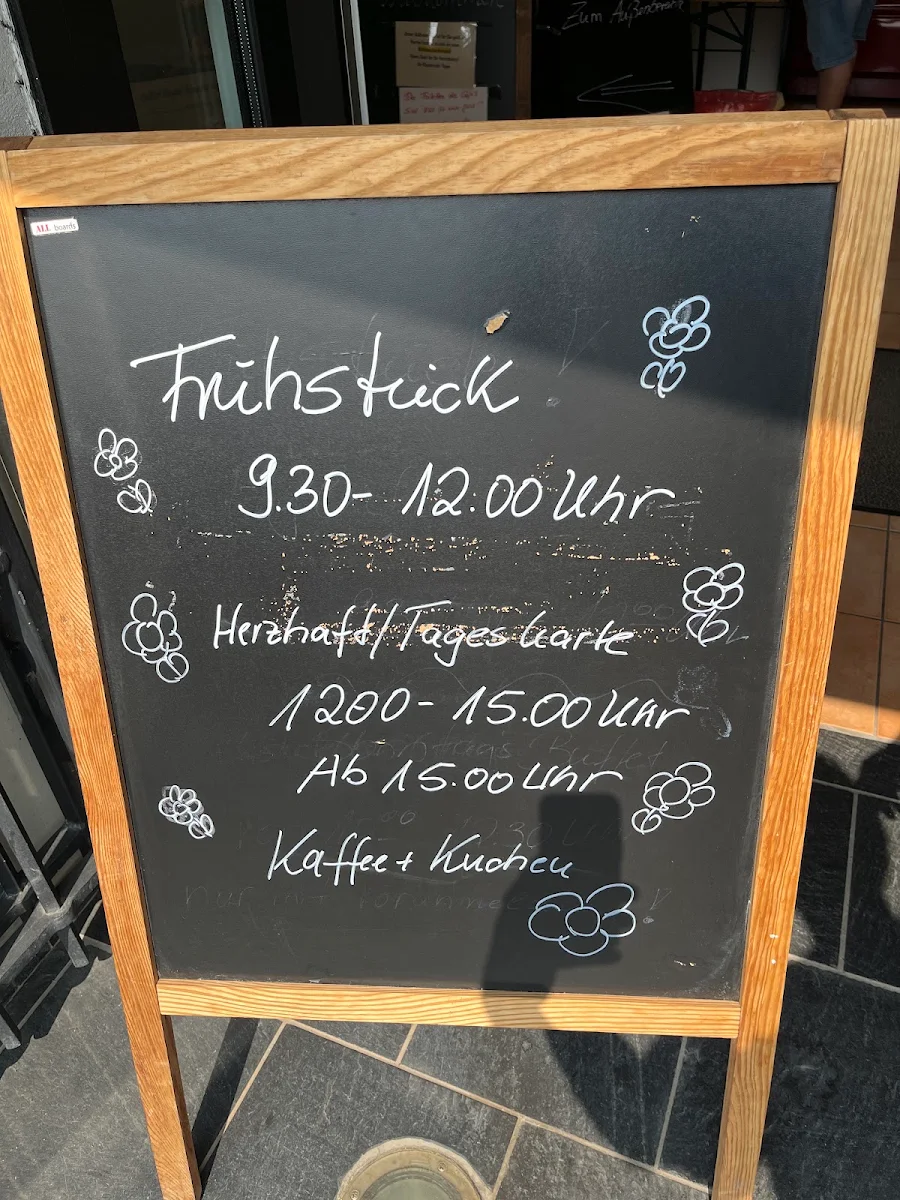 Zum Außenbereich
ALL boards
Frühstück
9.30- 12.00 Uhr
Herzhaft/Tageskarte
1200 - 15.00 Uhr
Ab 15.00 Uhr
Kaffee + Kuchen